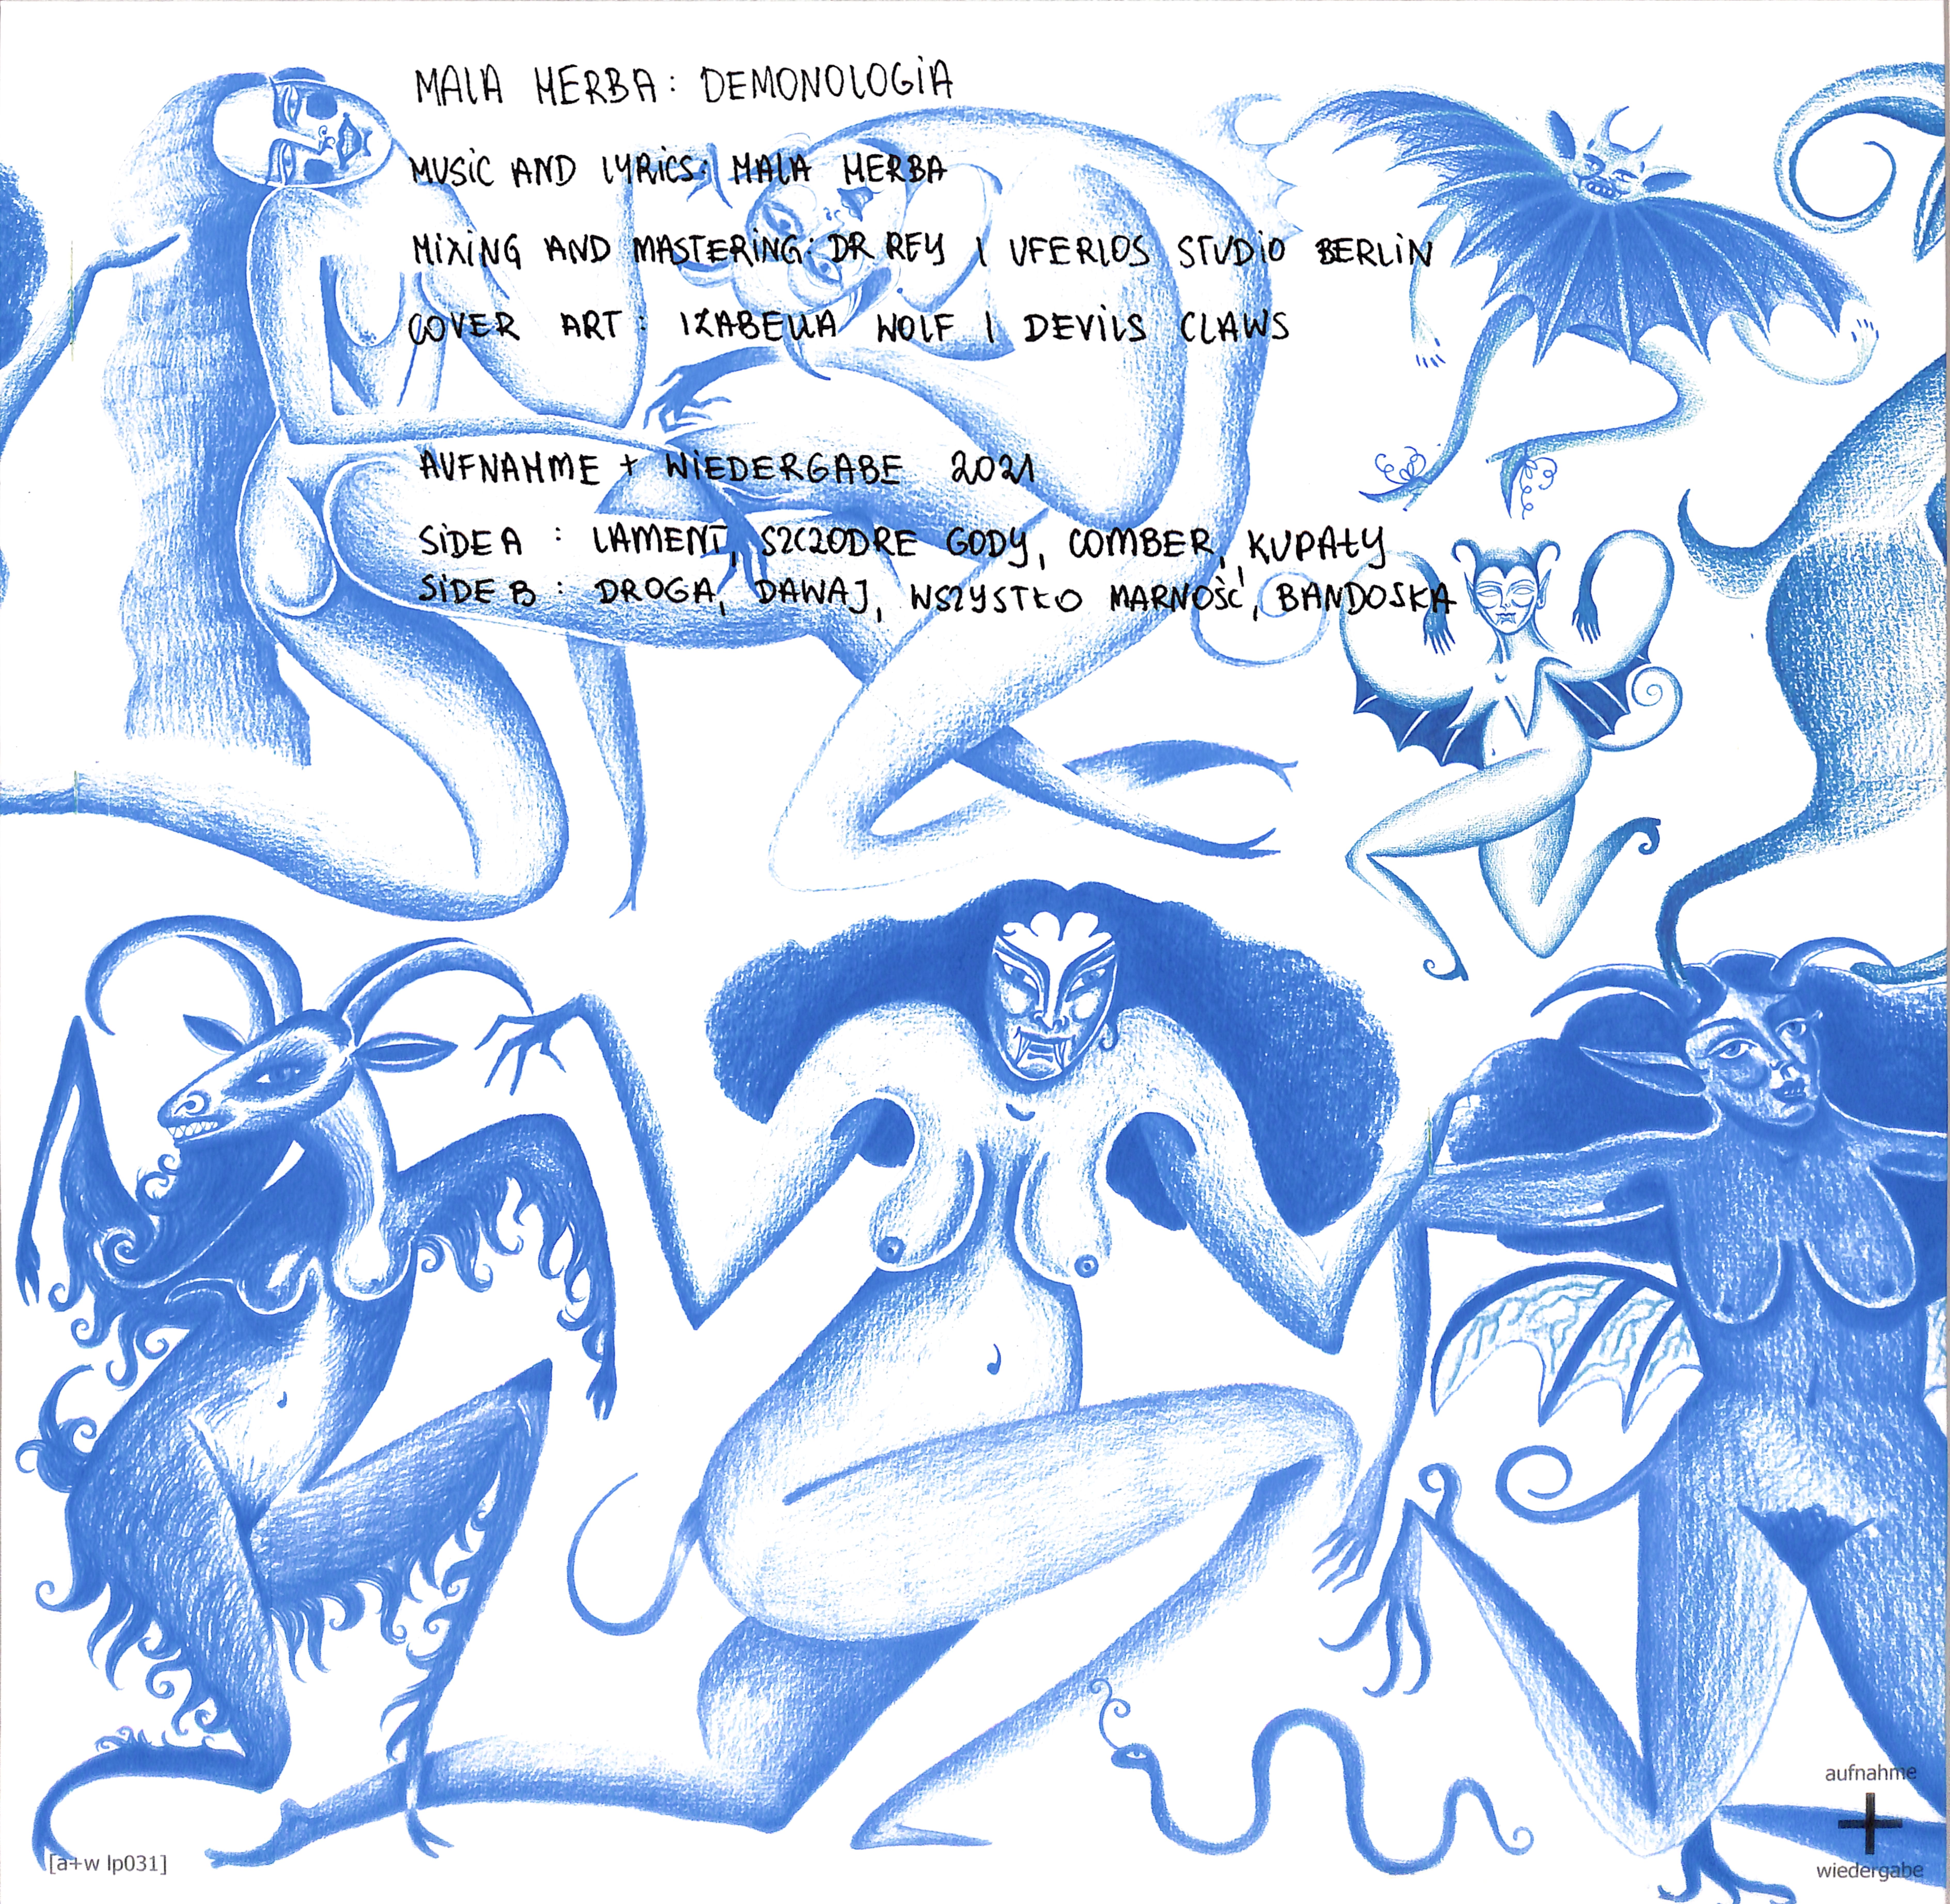 MALA HERBA: DEMONOLOGIA
MUSIC AND LYRICS: MALA HERBA
MIXING AND MASTERING: DR REY | UFERLOS STUDIO BERLIN
COVER ART: IZABELLA WOLF | DEVILS CLAWS
AUFNAHME + WIEDERGABE 2021
SIDE A : LAMENT, SZCZODRE GODY, COMBER, KUPAŁY
SIDE B : DROGA, DAWAJ, WSZYSTKO MARNOŚĆ, BANDOSKA
aufnahme
+
wiedergabe
[a+w lp031]